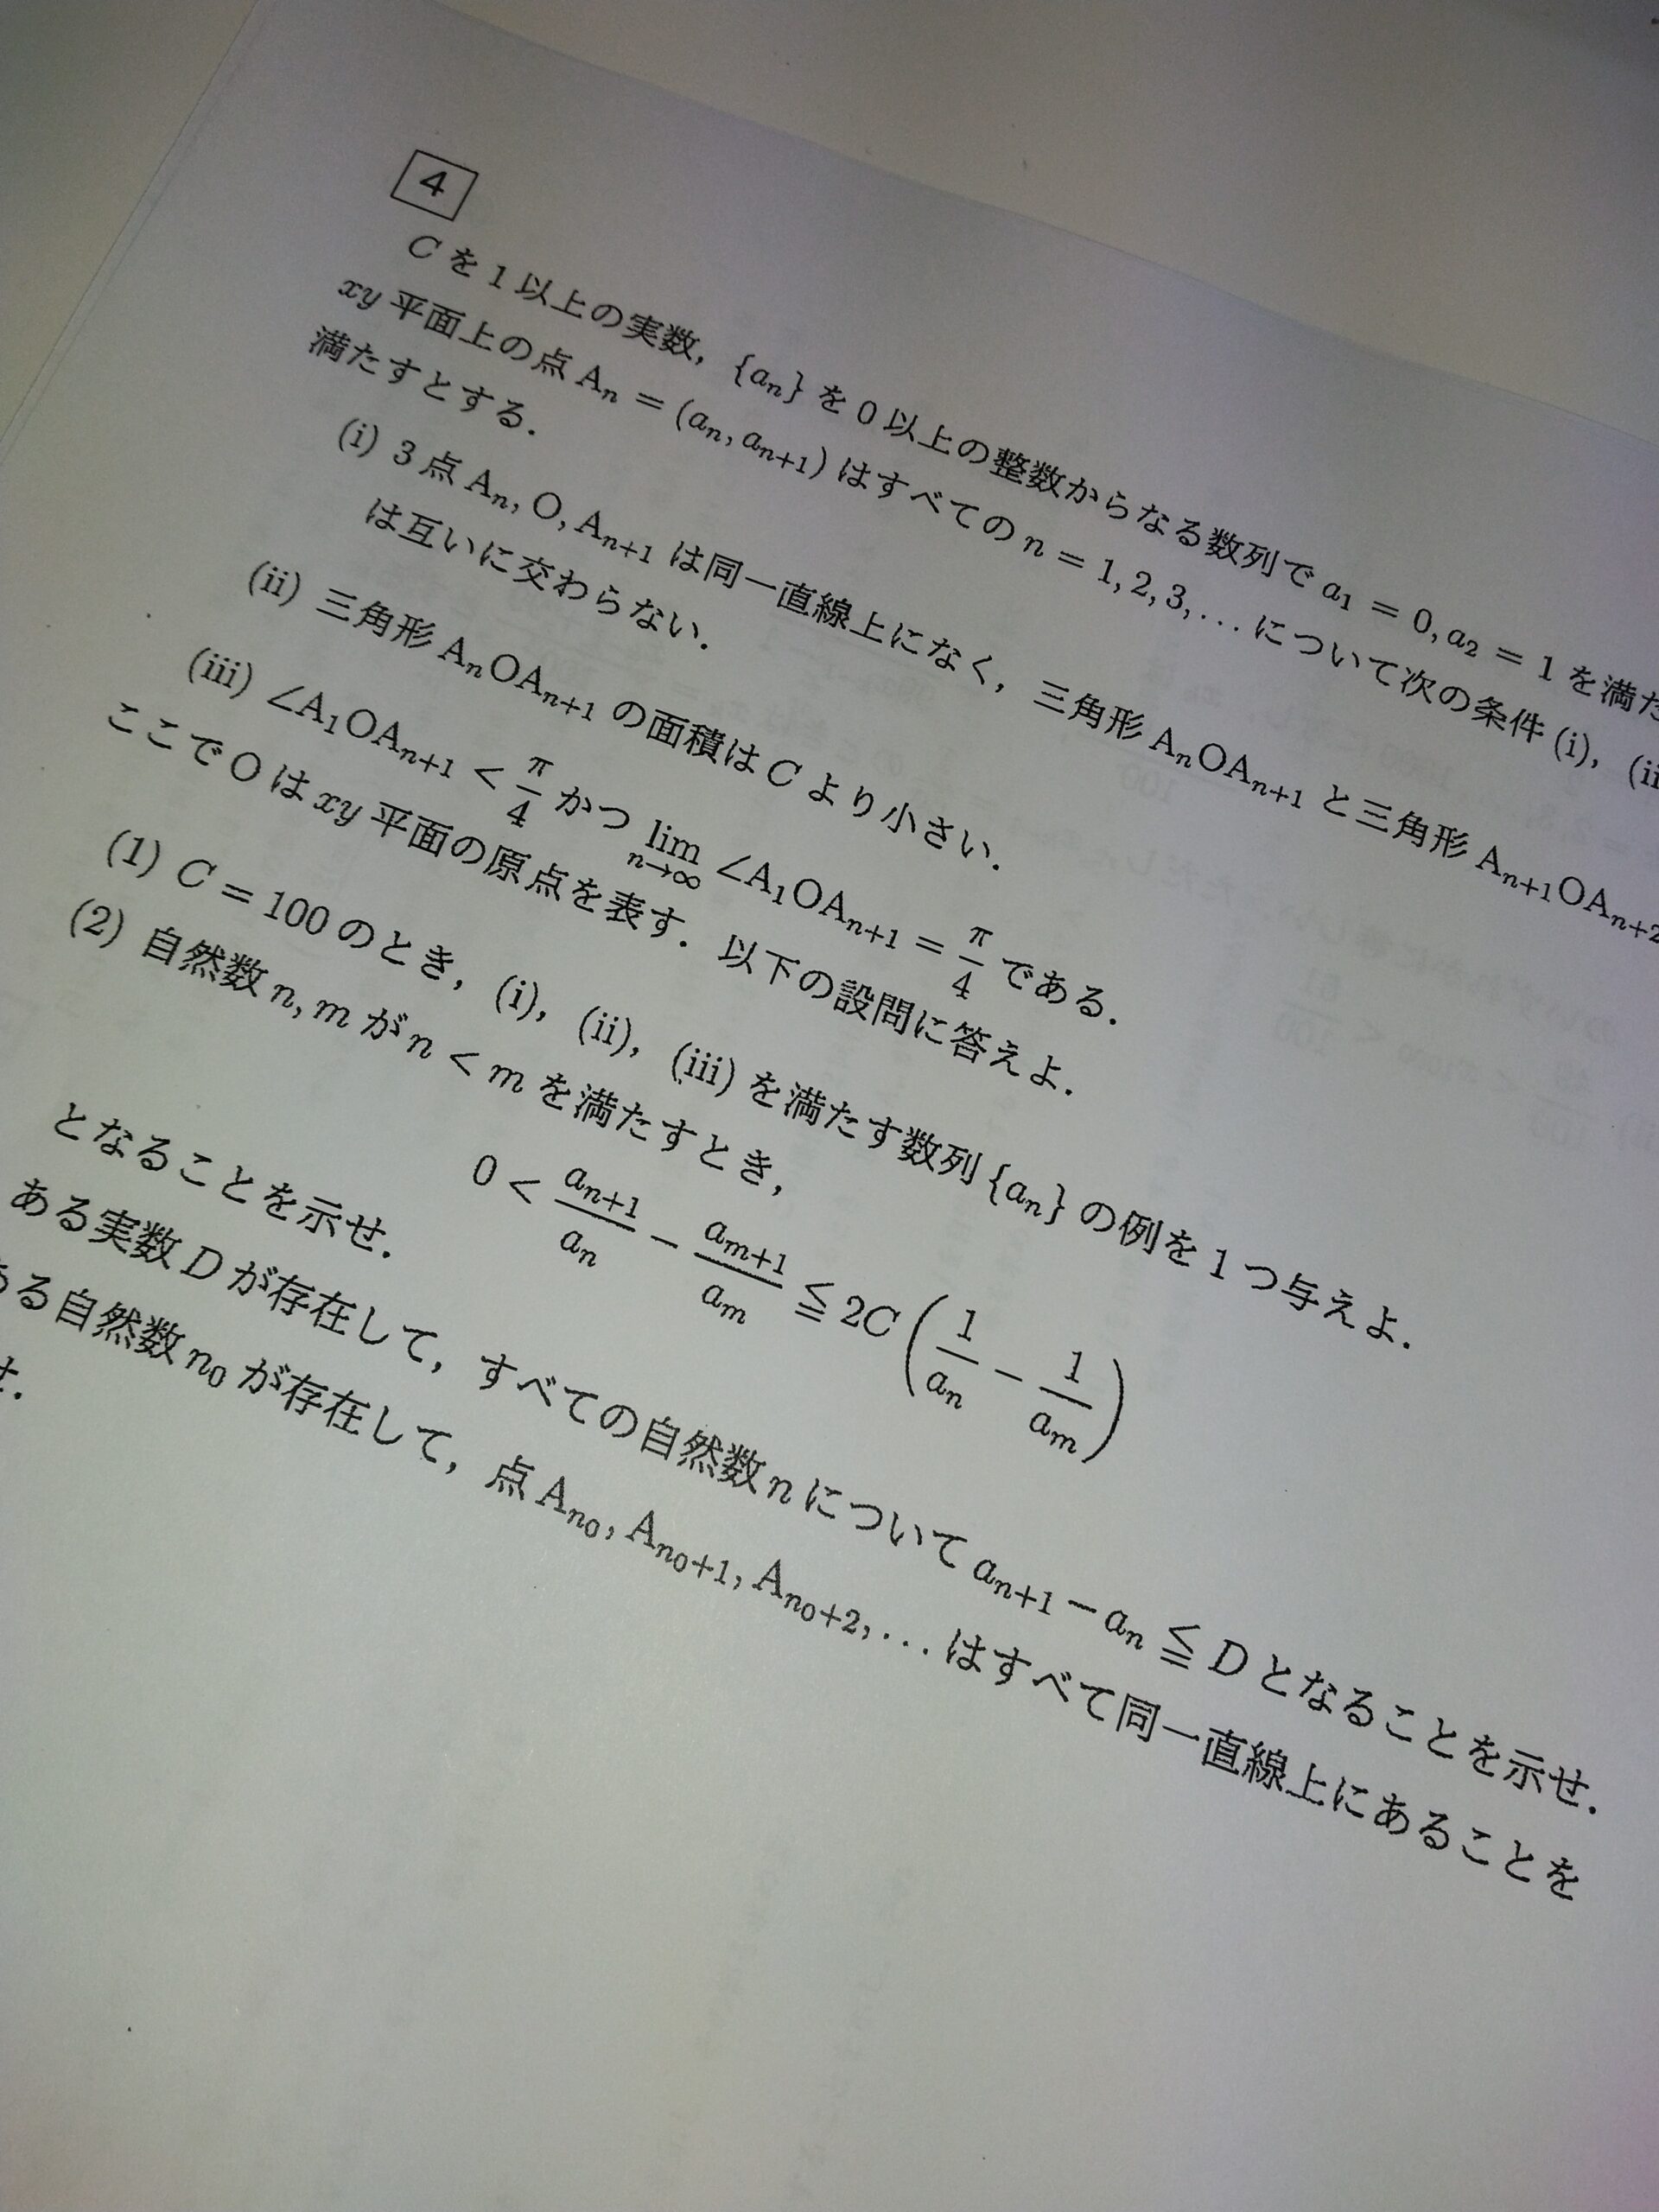 4
Cを1以上の実数,{aₙ}を0以上の整数からなる数列でa₁ = 0, a₂ = 1を満た
xy平面上の点Aₙ = (aₙ, aₙ₊₁)はすべてのn = 1, 2, 3, ...について次の条件(i),(ii
満たすとする.
(i) 3点Aₙ, O, Aₙ₊₁は同一直線上になく,三角形AₙOAₙ₊₁と三角形Aₙ₊₁OAₙ₊₂
は互いに交わらない.
(ii) 三角形AₙOAₙ₊₁の面積はCより小さい.
(iii) ∠A₁OAₙ₊₁ < π/4 かつ lim_{n→∞} ∠A₁OAₙ₊₁ = π/4 である.
ここでOはxy平面の原点を表す.以下の設問に答えよ.
(1) C = 100のとき,(i),(ii),(iii)を満たす数列{aₙ}の例を1つ与えよ.
(2) 自然数n, mがn < mを満たすとき,
0 < aₙ₊₁/aₙ − aₘ₊₁/aₘ ≦ 2C(1/aₙ − 1/aₘ)
となることを示せ.
ある実数Dが存在して,すべての自然数nについてaₙ₊₁ − aₙ ≦ Dとなることを示せ.
ある自然数n₀が存在して,点Aₙ₀, Aₙ₀₊₁, Aₙ₀₊₂, ...はすべて同一直線上にあることを
せ.